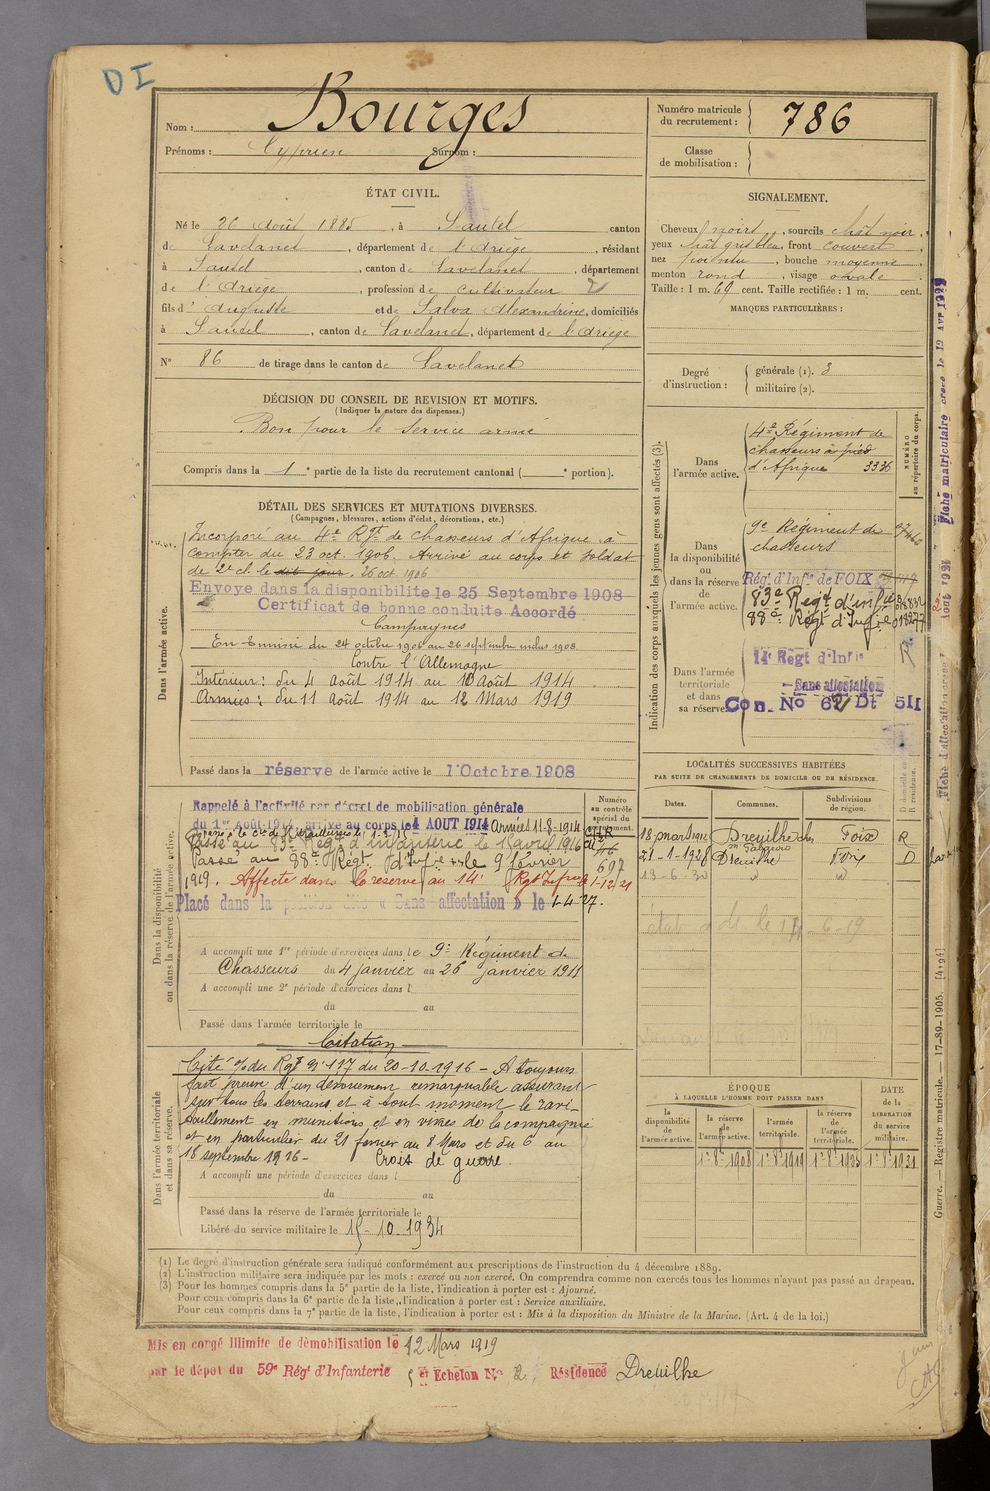 D I
Nom : Bourges
Prénoms : Cyprien Surnom :
Numéro matricule du recrutement : 786
Classe de mobilisation :
ÉTAT CIVIL.
Né le 26 Août 1885, à Sautel canton
de Lavelanet, département de l'Ariège, résidant
à Sautel, canton de Lavelanet, département
de l'Ariège, profession de cultivateur
fils d'Auguste et de Salva Alexandrine, domiciliés
à Sautel, canton de Lavelanet, département de l'Ariège
N° 86 de tirage dans le canton de Lavelanet
SIGNALEMENT.
Cheveux noirs, sourcils chât noir,
yeux chât gris bleu, front couvert
nez pointu, bouche moyenne
menton rond, visage ovale
Taille : 1 m. 69 cent. Taille rectifiée : 1 m. cent.
MARQUES PARTICULIÈRES :
Degré d'instruction :
générale (1). 3
militaire (2).
DÉCISION DU CONSEIL DE REVISION ET MOTIFS.
(Indiquer la nature des dispenses.)
Bon pour le service armé
Compris dans la 1e partie de la liste du recrutement cantonal ( e portion).
DÉTAIL DES SERVICES ET MUTATIONS DIVERSES.
(Campagnes, blessures, actions d'éclat, décorations, etc.)
Dans l'armée active.
Incorporé au 4e Rgt de chasseurs d'Afrique à
compter du 23 oct. 1906. Arrivé au corps et soldat
de 2e cl. le dit jour. 26 oct 1906
Envoyé dans la disponibilité le 25 Septembre 1908
Certificat de bonne conduite Accordé
Campagnes
En Tunisie du 24 octobre 1906 au 26 septembre inclus 1908
Contre l'Allemagne
Intérieur : du 4 Août 1914 au 10 Août 1914
Armées : du 11 Août 1914 au 12 Mars 1919
Passé dans la réserve de l'armée active le 1 Octobre 1908
Indication des corps auxquels les jeunes gens sont affectés (3).
NUMÉRO au répertoire du corps.
Dans l'armée active.
4e Régiment de
chasseurs à pied
d'Afrique 3336
Dans la disponibilité ou dans la réserve de l'armée active.
9e Régiment de
chasseurs
Rég. d'Infie de FOIX
83e Regt d'infie
88e Régt d'Infie
Dans l'armée territoriale et dans sa réserve.
14e Regt d'Infie
Sans affectation
Con. No 62 Dt 511
Dans la disponibilité ou dans la réserve de l'armée active.
Numéro au contrôle spécial du recrutement.
Rappelé à l'activité par décret de mobilisation générale
du 1er Août 1914, arrivé au corps le 4 AOUT 1914 Armées 11-8-1914
Passé au 83e Régt d'infanterie le 1 avril 1916
Passé au 88e Régt d'Infie le 9 février
1919. Affecté dans la réserve au 14e Rgt Infie le 1-12-21
697
Placé dans la position dite « Sans affectation » le 1-4-27.
A accompli une 1re période d'exercices dans le 9e Régiment de
Chasseurs du 4 janvier au 26 janvier 1911
A accompli une 2e période d'exercices dans l
du au
Passé dans l'armée territoriale le
LOCALITÉS SUCCESSIVES HABITÉES
PAR SUITE DE CHANGEMENTS DE DOMICILE OU DE RÉSIDENCE.
Dates. Communes. Subdivisions de région. D domicile ou R résidence.
18 mars 1912 Dreuilhe Foix R
21-1-1928 Dreuilhe Foix D
13-6-30 " "
Citation
Dans l'armée territoriale et dans sa réserve.
Cité % du Rgt N° 117 du 20-10-1916 – A toujours
fait preuve d'un dévouement remarquable assurant
sur tous les terrains et à tout moment le ravi-
taillement en munitions et en vivres de la compagnie
et en particulier du 21 février au 8 Mars et du 6 au
18 septembre 1916 – Croix de guerre.
A accompli une période d'exercices dans l
du au
Passé dans la réserve de l'armée territoriale le
Libéré du service militaire le 15-10-1934
ÉPOQUE
À LAQUELLE L'HOMME DOIT PASSER DANS
la disponibilité de l'armée active. la réserve de l'armée active. l'armée territoriale. la réserve de l'armée territoriale.
DATE de la LIBÉRATION du service militaire.
1er 8bre 1908 1er 8bre 1919 1er 8bre 1925 1er 8bre 1931
(1) Le degré d'instruction générale sera indiqué conformément aux prescriptions de l'instruction du 4 décembre 1889.
(2) L'instruction militaire sera indiquée par les mots : exercé ou non exercé. On comprendra comme non exercés tous les hommes n'ayant pas passé au drapeau.
(3) Pour les hommes compris dans la 5e partie de la liste, l'indication à porter est : Ajourné.
Pour ceux compris dans la 6e partie de la liste, l'indication à porter est : Service auxiliaire.
Pour ceux compris dans la 7e partie de la liste, l'indication à porter est : Mis à la disposition du Ministre de la Marine. (Art. 4 de la loi.)
Mis en congé illimité de démobilisation le 12 Mars 1919
par le dépôt du 59e Régt d'Infanterie 5 et Echelon No 2, Résidence Dreuilhe
Guerre. — Registre matricule. — 17-89-1905. [4194]